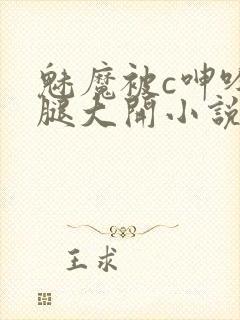 魅魔被c呻吟
腿大開小説
王求